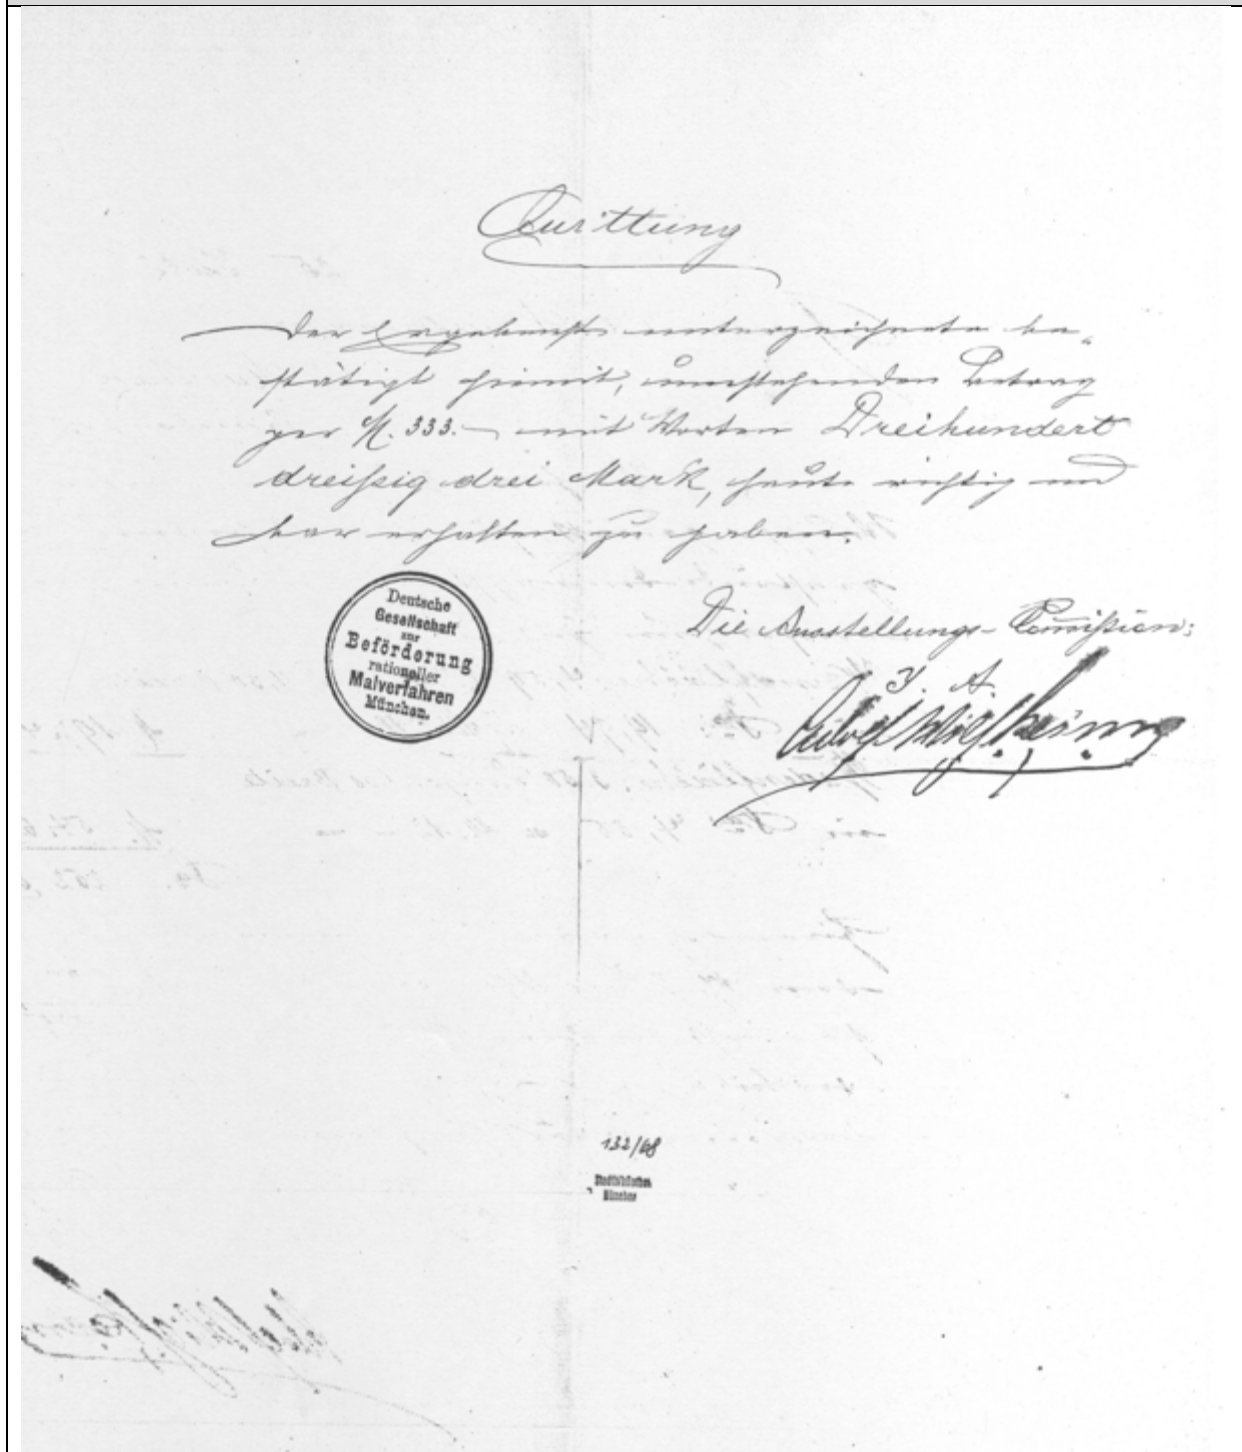 Quittung
Der Ergebenst unterzeichnete be-
stätigt hiemit, umstehenden Betrag
per M. 333.— mit Worten Dreihundert
dreißig drei Mark, heute richtig und
bar erhalten zu haben.
Deutsche
Gesellschaft
zur
Beförderung
rationeller
Malverfahren
München.
Die Ausstellungs-Commißion:
I. A.
132/68
Stadtbibliothek
München